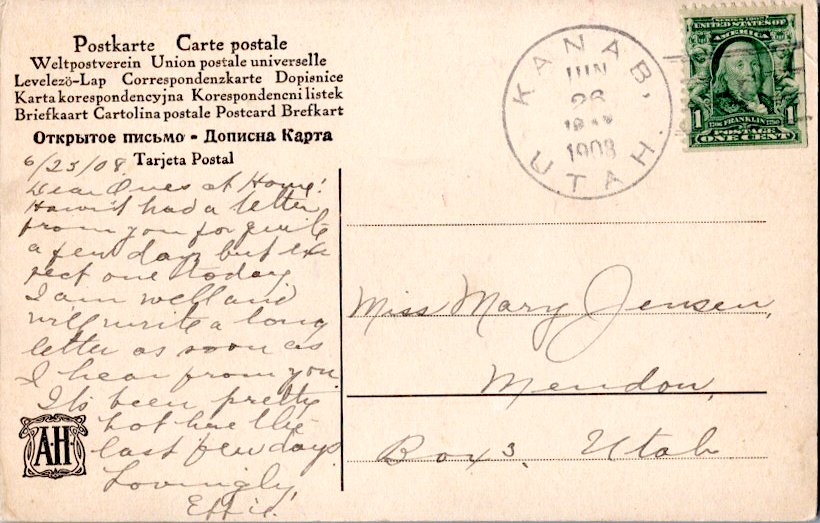 Postkarte Carte postale
Weltpostverein Union postale universelle
Levelezö-Lap Correspondenzkarte Dopisnice
Karta korespondencyjna Korespondencni listek
Briefkaart Cartolina postale Postcard Brefkart
Открытое письмо - Дописна Карта
Tarjeta Postal
6/25/08.
Dear Ones at Home!
Haven't had a letter
from you for quite
a few days but ex
pect one today
I am well and
will write a long
letter as soon as
I hear from you.
Its been pretty
hot here the
last few days.
Lovingly,
Effie.
A.H.
KANAB,
JUN
26
1908
UTAH.
SERIES 1902
UNITED STATES OF
AMERICA
1706 FRANKLIN 1790
1 1
POSTAGE
ONE CENT
Miss Mary Jensen,
Mendon,
Box 3. Utah